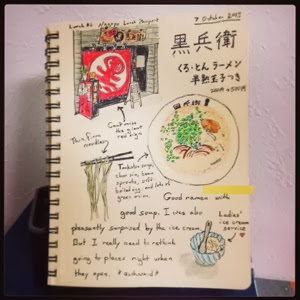 Lunch #2
7 October 2013
黒兵衛
くろとんラーメン
半熟玉子つき
Can't miss
the giant
red sign
Thin, firm
noodles
Tonkotsu soup,
char siu, bean
sprouts, soft
boiled egg, and lots of
green onion.
Good ramen with
good soup. I was also
pleasantly surprised by the ice cream.
But I really need to rethink
going to places right when
they open. *awkward*
Ladies'
ice cream
service